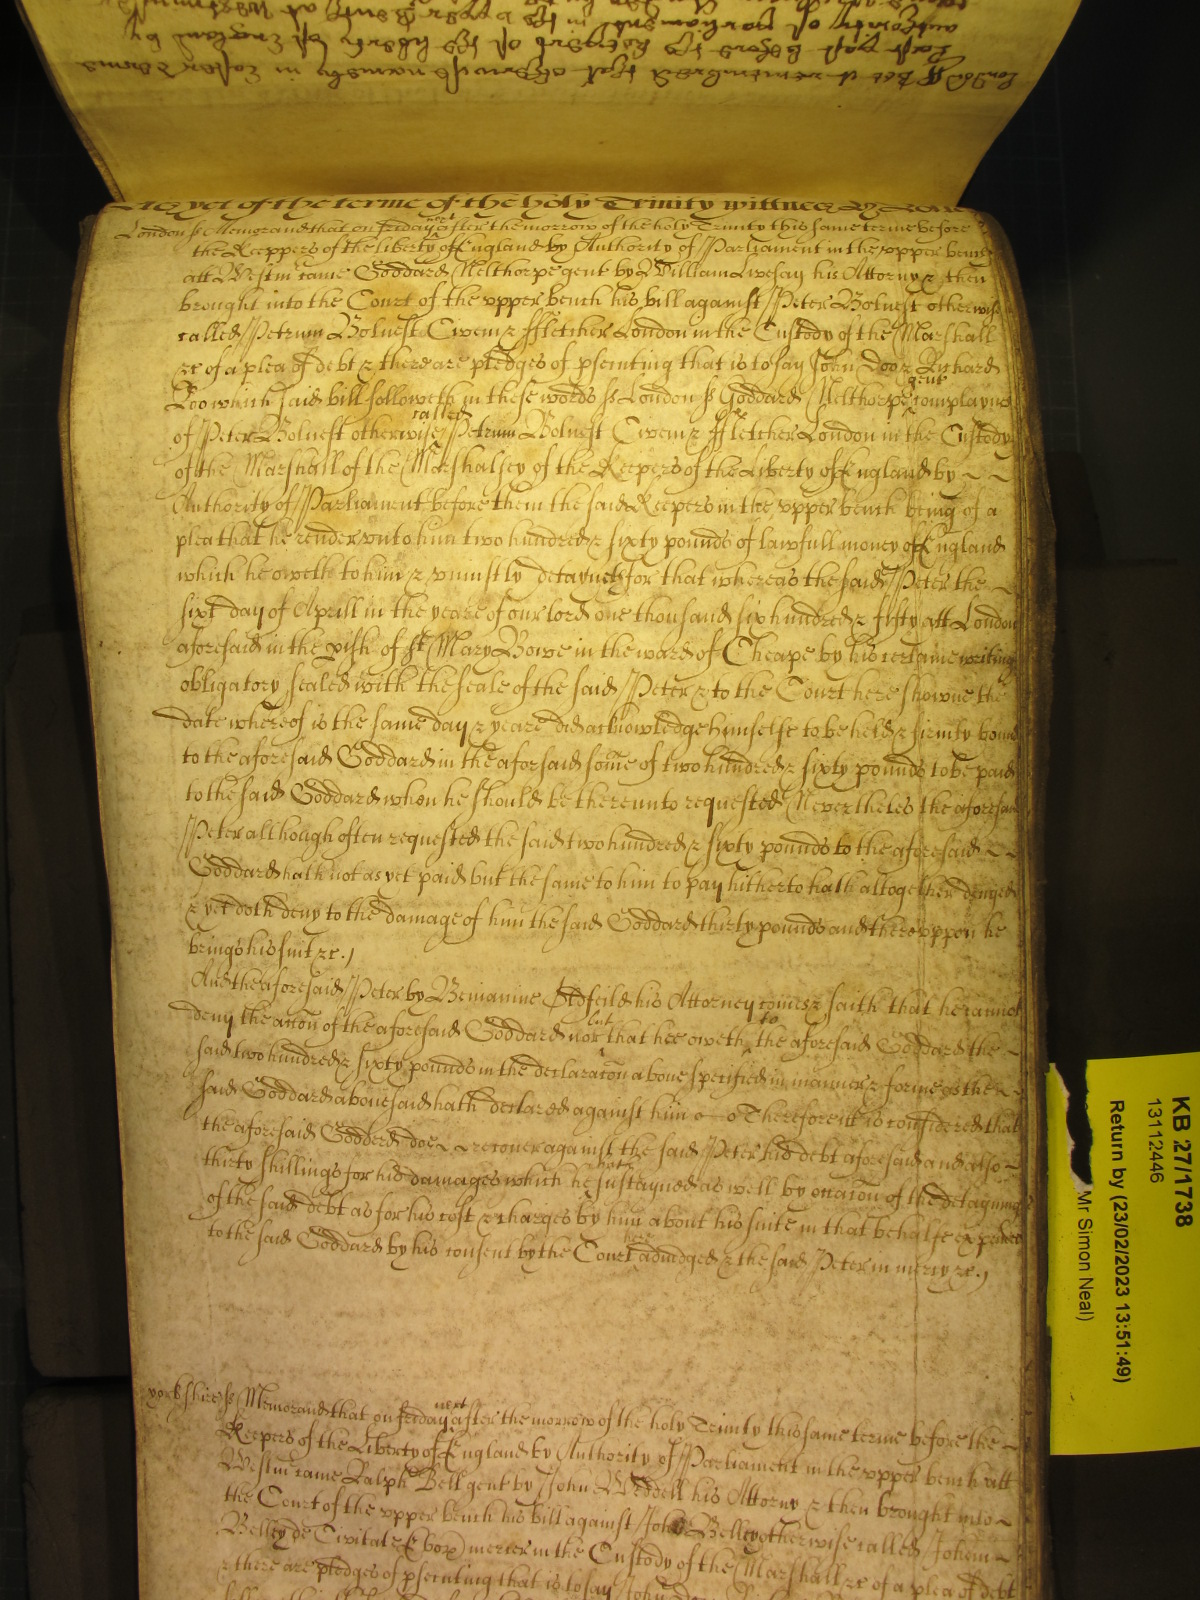 As yet of the terme of the holy Trinity wittnes
London ss Memorand that on friday next after the morrow of the holy Trinity this same terme before
the Keepers of the liberty of England by Authority of Parliament in the upper bench
att Westm came Goddard Nelthorpe gent by William Livesay his Attorny & then
brought into the Court of the upper bench his bill against Peter Bolnest otherwise
called Petrum Bolnest Civem & ffletcher London in the Custody of the Marshall
&c of a plea of debt & there are pledges of psecuting that is to say John Doo & Richard
Roo which said bill followeth in these words ss London ss Goddard Nelthorpe gent complaynes
of Peter Bolnest otherwise called Petrum Bolnest Civem & ffletcher London in the Custody
of the Marshall of the Marshalsey of the Keepers of the Liberty of England by
Authority of Parliament before them the said Keepers in the upper bench being of a
plea that he render unto him two hundred & sixty pounds of lawfull money of England
which he oweth to him & uniustly detayneth for that whereas the said Peter the
sixt day of Aprill in the yeare of our lord one thousand six hundred & fifty att London
aforesaid in the pish of st Mary Bowe in the ward of Cheape by his certaine writing
obligatory sealed with the seale of the said Peter & to the Court here showne the
date whereof is the same day & yeare did acknowledge himselfe to be held & firmly bound
to the aforesaid Goddard in the aforsaid some of two hundred & sixty pounds to be paid
to the said Goddard when he should be thereunto requested Neverthelesse the aforesaid
Peter although often requested the said two hundred & sixty pounds to the aforesaid
Goddard hath not as yet paid but the same to him to pay hitherto hath altogether denyed
& yet doth deny to the damage of him the said Goddard thirty pounds and thereuppon he
brings his suit &c.
And the aforesaid Peter by Beniamine Oldfeild his Attorney comes & saith that he cannot
deny the accon of the aforesaid Goddard nor but that hee oweth to the aforesaid Goddard the
said two hundred & sixty pounds in the declaracon above specified in manner & forme as the
said Goddard above said hath declared against him Therefore itt is considered that
the aforesaid Godderd doe recover against the said Peter his debt aforesaid and also
thirty shillings for his damages which he hath sustayned as well by occacon of the detayning
of the said debt as for his cost & charges by him about his suite in that behalfe expended
to the said Goddard by his consent by the Court here adiudged & the said Peter in mercy &c.
yorkshire ss Memorand that on friday next after the morrow of the holy Trinity this same terme before the
Keepers of the Liberty of England by Authority of Parliament in the upper bench att
Westm came Ralph Bell gent by John Weddell his Attorny & then brought into
the Court of the upper bench his bill against John Belley otherwise called Johem
Belley de Civitate Ebor mercer in the Custody of the Marshall &c of a plea of debt
& there are pledges of psecuting that is to say John
KB 27/1738
13112446
Return by (23/02/2023 13:51:49)
Mr Simon Neal)